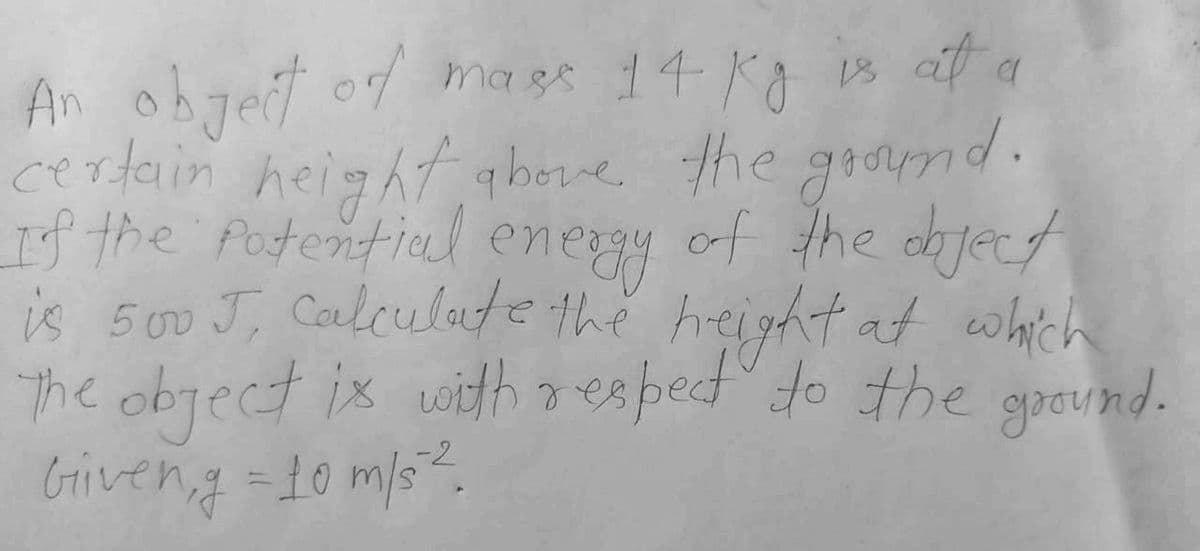 An object of mass 14 Kg is at a
certain height above the ground.
If the Potential energy of the object
is 500 J, Calculate the height at which
The object is with respect to the ground.
Given, g = 10 m/s⁻².